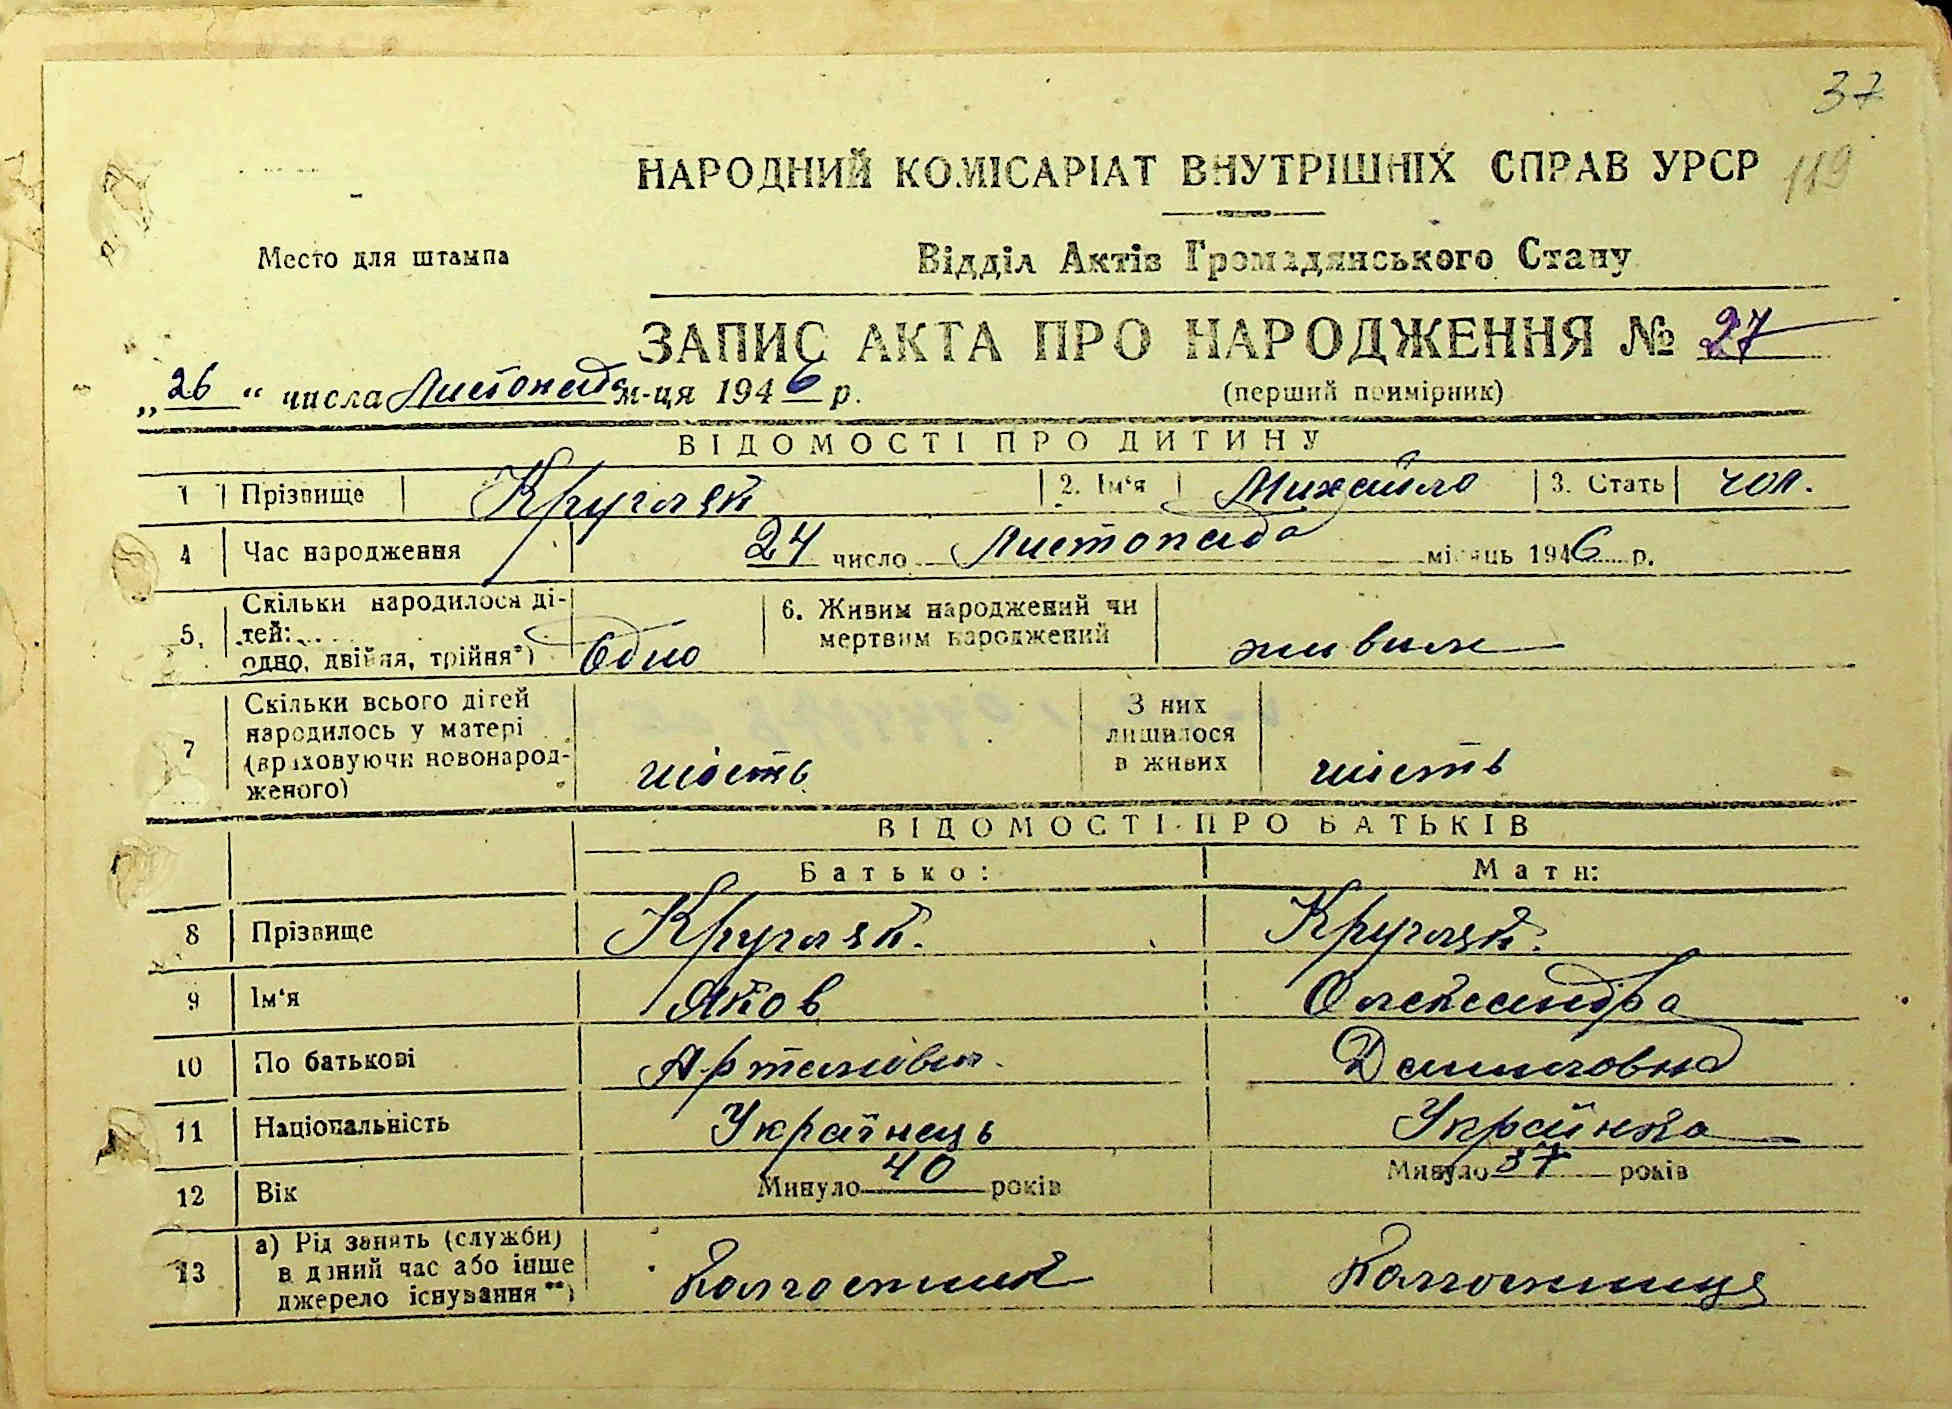 37
119
НАРОДНИЙ КОМІСАРІАТ ВНУТРІШНІХ СПРАВ УРСР
Место для штампа
Відділ Актів Громадянського Стану
ЗАПИС АКТА ПРО НАРОДЖЕННЯ № 27
„26“ числа Листопада м-ця 1946 р.
(перший примірник)
ВІДОМОСТІ ПРО ДИТИНУ
1 Прізвище Кругляк 2. Ім'я Михайло 3. Стать чол.
4 Час народження 24 число Листопада місяць 1946 р.
5. Скільки народилося ді-
тей:
одно, двійня, трійня*) Одно
6. Живим народжений чи
мертвим народжений живим
7 Скільки всього дітей
народилось у матері
(враховуючи новонарод-
женого) шість
З них
лишилося
в живих шість
ВІДОМОСТІ ПРО БАТЬКІВ
Батько: Мати:
8 Прізвище Кругляк. Кругляк.
9 Ім'я Яков Олександра
10 По батькові Артамович. Даниловна
11 Національність Українець Українка
12 Вік Минуло 40 років Минуло 37 років
13 а) Рід занять (служби)
в даний час або інше
джерело існування**) Колгоспник Колгоспниця